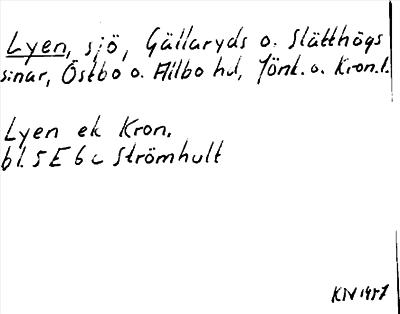 Lyen, sjö, Gällaryds o. Slätthögs
snar, Östbo o. Allbo hd, Jönk. o. Kron. l.
Lyen ek Kron.
bl. 5 E 6 c Strömhult
KN 1957